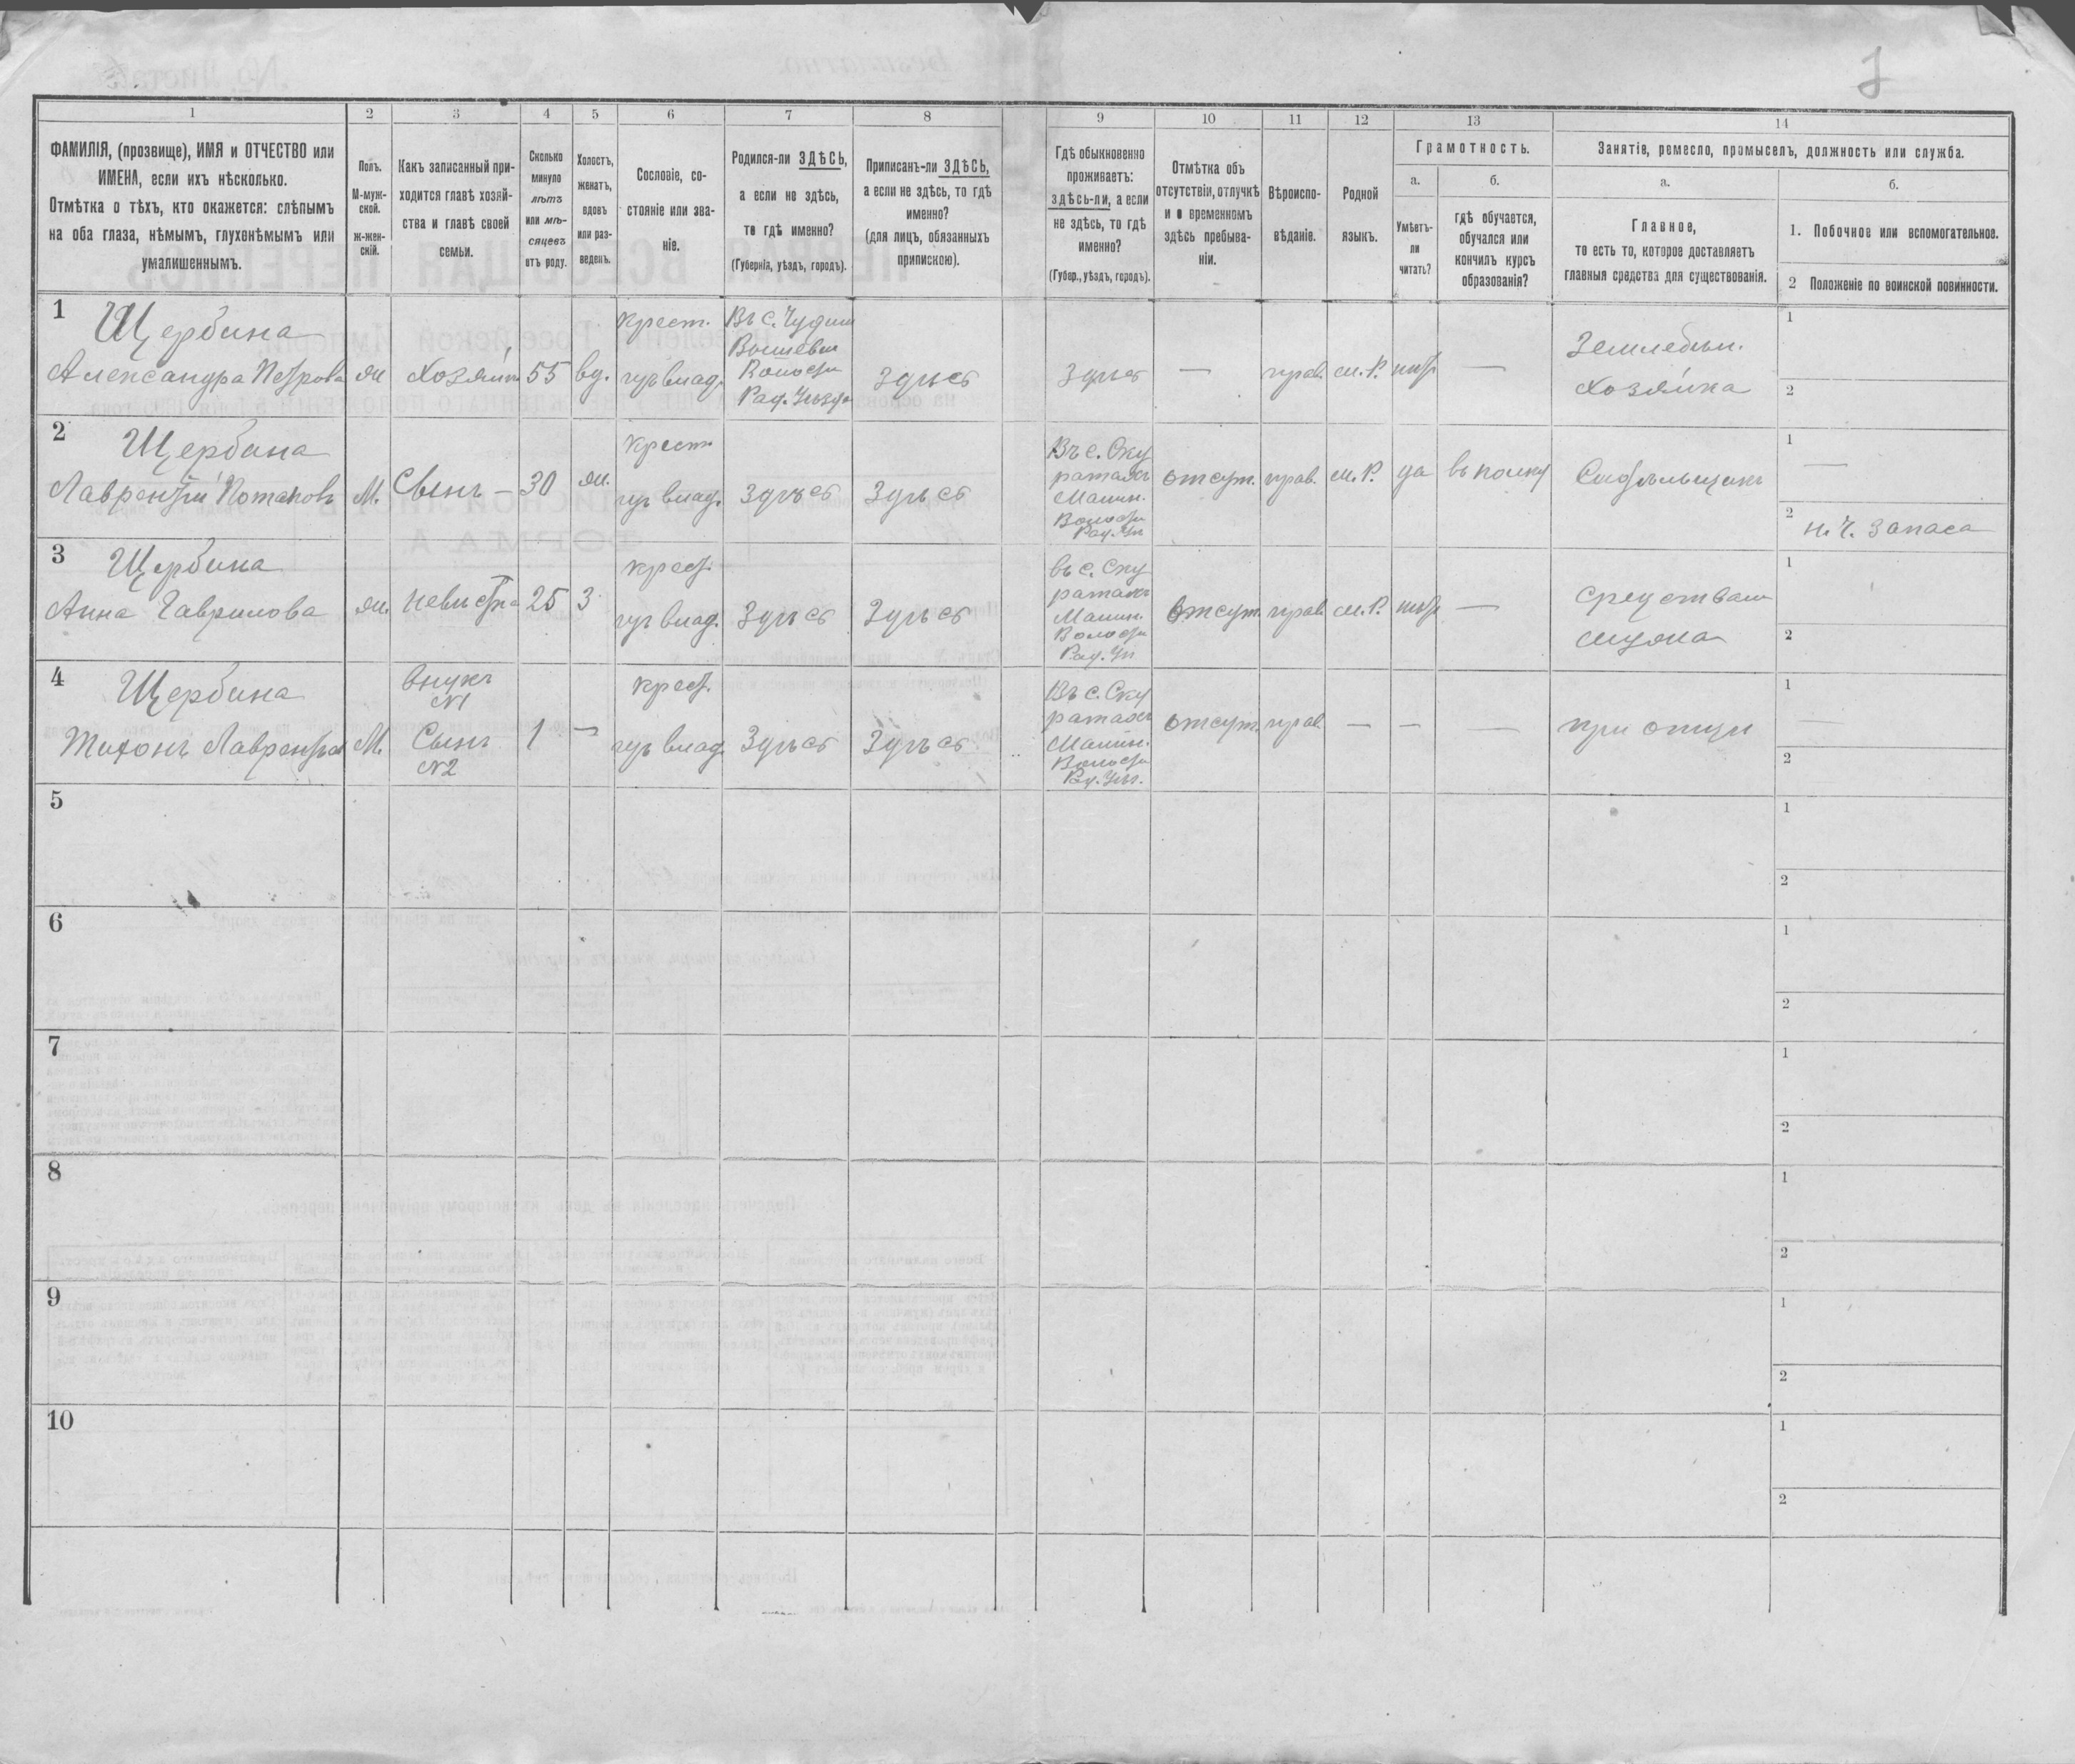 1 2 3 4 5 6 7 8 9 10 11 12 13 14
ФАМИЛІЯ, (прозвище), ИМЯ и ОТЧЕСТВО или
ИМЕНА, если ихъ нѣсколько.
Отмѣтка о тѣхъ, кто окажется: слѣпымъ
на оба глаза, нѣмымъ, глухонѣмымъ или
умалишеннымъ.
Полъ.
М-муж-
ской.
ж-жен-
скій.
Какъ записанный при-
ходится главѣ хозяй-
ства и главѣ своей
семьи.
Сколько
минуло
лѣтъ
или мѣ-
сяцевъ
отъ роду.
Холостъ,
женатъ,
вдовъ
или раз-
веденъ.
Сословіе, со-
стояніе или зва-
ніе.
Родился-ли ЗДѢСЬ,
а если не здѣсь,
то гдѣ именно?
(Губернія, уѣздъ, городъ).
Приписанъ-ли ЗДѢСЬ,
а если не здѣсь, то гдѣ
именно?
(для лицъ, обязанныхъ
припискою).
Гдѣ обыкновенно
проживаетъ:
здѣсь-ли, а если
не здѣсь, то гдѣ
именно?
(Губер., уѣздъ, городъ).
Отмѣтка объ
отсутствіи, отлучкѣ
и о временномъ
здѣсь пребыва-
ніи.
Вѣроиспо-
вѣданіе.
Родной
языкъ.
Грамотность.
а.
Умѣетъ-
ли
читать?
б.
гдѣ обучается,
обучался или
кончилъ курсъ
образованія?
Занятіе, ремесло, промыселъ, должность или служба.
а.
Главное,
то есть то, которое доставляетъ
главныя средства для существованія.
б.
1. Побочное или вспомогательное.
2 Положеніе по воинской повинности.
1
Щербина
Александра Петрова
ж
Хозяйка
55
вд.
крест.
изъ влад.
Въ с. Чудин
Вышевич
Волости
Рад. Уѣзда
Здѣсь
Здѣсь
—
прав.
м. Р.
нѣт
—
Земледѣл.
Хозяйка
1
2
2
Щербина
Лаврентій Потаповъ
М.
Сынъ —
30
ж.
крест.
изъ влад.
Здѣсь
Здѣсь
Въ с. Ску
ратахъ
Малин.
Волости
Рад. Уѣ
отсут.
прав.
м. Р.
да
въ полку
1
—
2
н. ч. запаса
3
Щербина
Анна Гаврилова
ж.
невѣстка
25
З
крест.
изъ влад.
Здѣсь
Здѣсь
въ с. Ску
ратахъ
Малин.
Волости
Рад. Уѣ
Отсут.
прав.
м. Р.
нѣт
—
средствам
мужа
1
2
4
Щербина
Тихонъ Лаврентьев
М.
внукъ
№1
Сынъ
№2
1
—
крест.
изъ влад.
Здѣсь
Здѣсь
Въ с. Ску
ратахъ
Малин.
Волости
Рад. Уѣз.
отсут.
прав.
—
—
—
при отцѣ
1
—
2
5
1
2
6
1
2
7
1
2
8
1
2
9
1
2
10
1
2